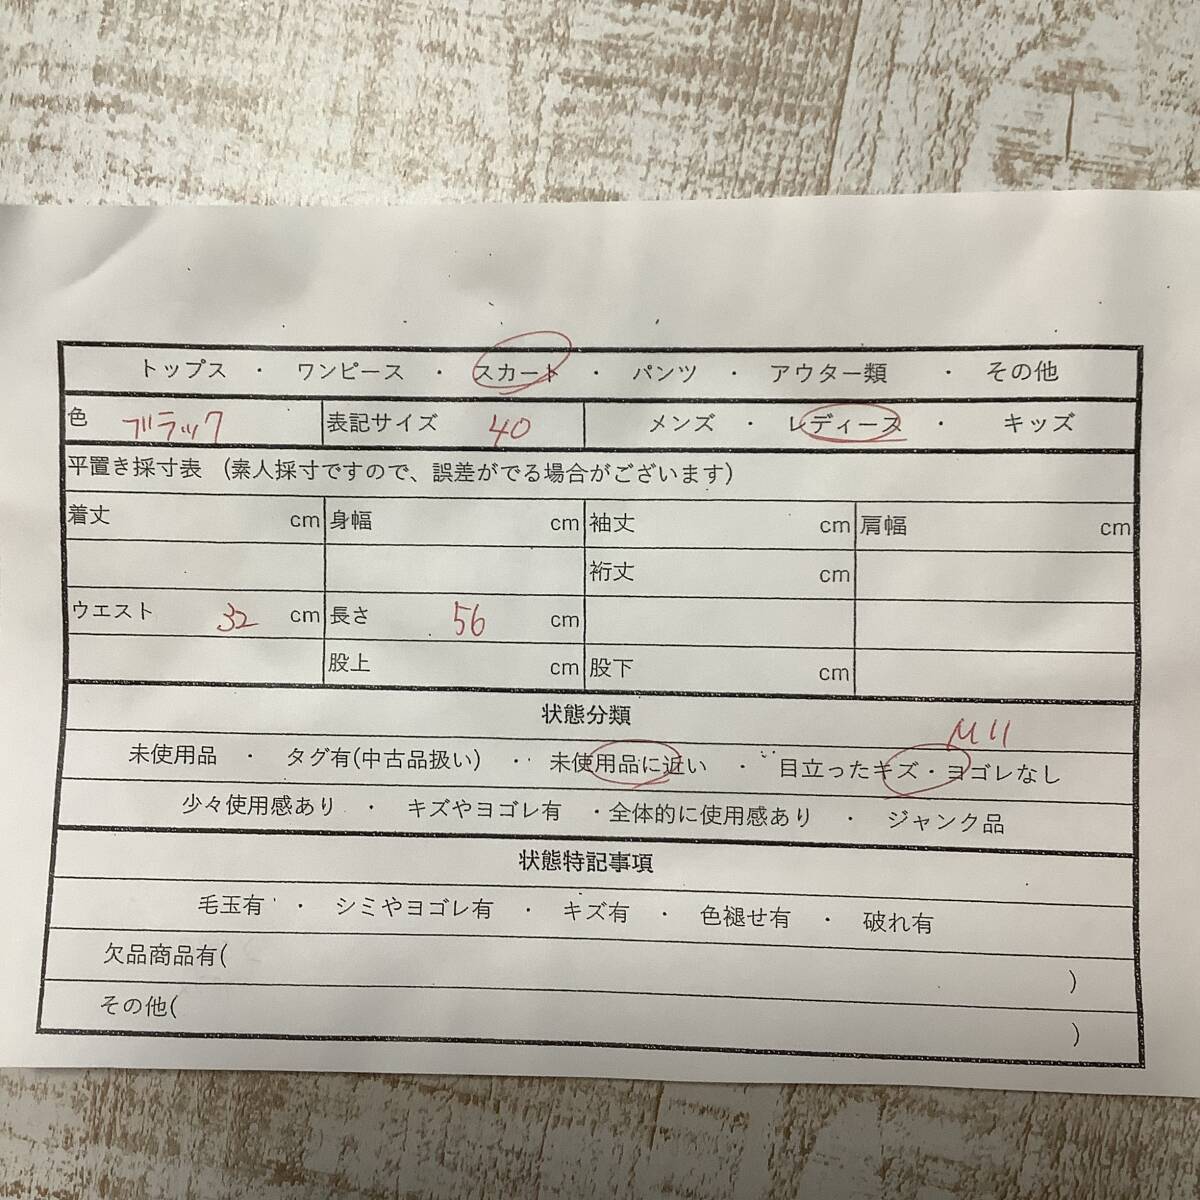 トップス ・ ワンピース ・ スカート ・ パンツ ・ アウター類 ・ その他
色 ブラック 表記サイズ 40 メンズ ・ レディース ・ キッズ
平置き採寸表 (素人採寸ですので、誤差がでる場合がございます)
着丈 cm 身幅 cm 袖丈 cm 肩幅 cm
裄丈 cm
ウエスト 32 cm 長さ 56 cm
股上 cm 股下 cm
状態分類
未使用品 ・ タグ有(中古品扱い) ・ 未使用品に近い ・ 目立ったキズ・ヨゴレなし
少々使用感あり ・ キズやヨゴレ有 ・全体的に使用感あり ・ ジャンク品
状態特記事項
毛玉有 ・ シミやヨゴレ有 ・ キズ有 ・ 色褪せ有 ・ 破れ有
欠品商品有( )
その他( )